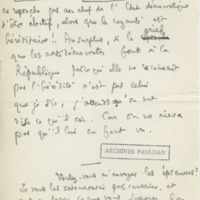 ne reproche pas au chef de l'Etat démocratique
d'être électif, alors que la royauté est
héréditaire !! Au surplus, si le grief
que les antidémocrates font à la
République parce qu'elle ne reconnaît
pas l'hérédité n'est pas celui
que je dis, j'attends qu'on me
dise ce qu'il est. Car on ne niera
pas qu'ils lui en font un.
ARCHIVES PAULHAN
Voulez-vous m'envoyer les épreuves ?
Je vous les retournerai par courrier, et